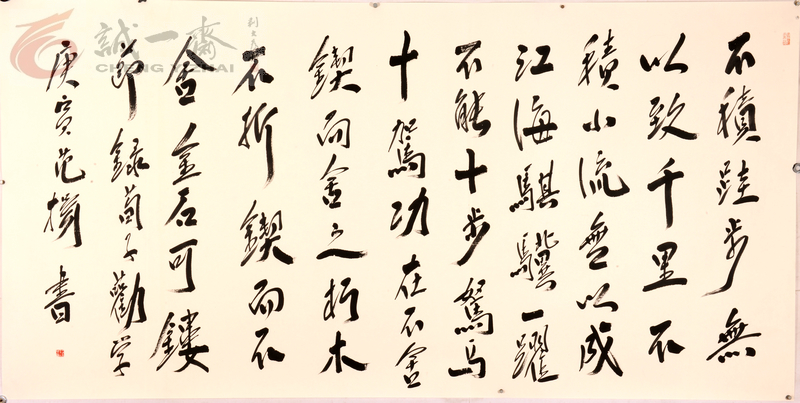 不積跬步無
以致千里不
積小流無以成
江海騏驥一躍
不能十步駑馬
十駕功在不舍
鍥而舍之朽木
不折鍥而不
舍金石可鏤
節録荀子勸学
庚寅范書
誠一齋
CHENG YIZHAI